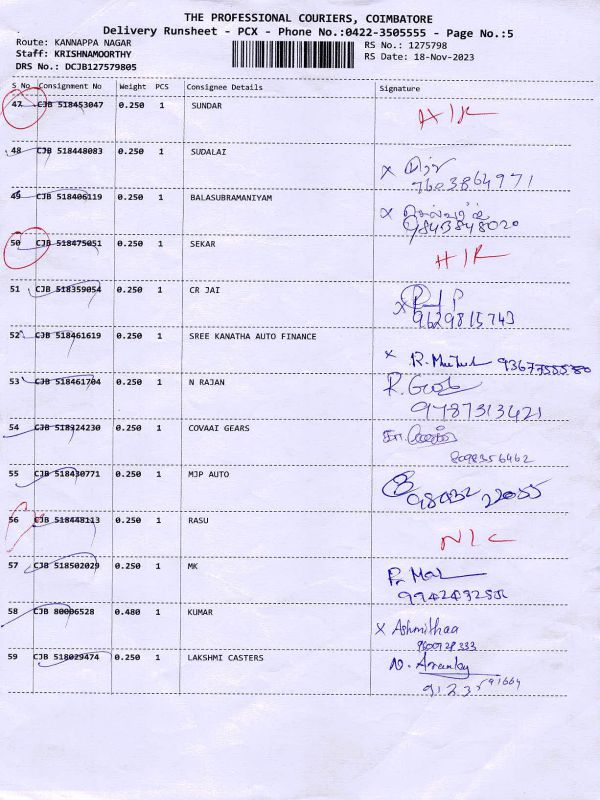 THE PROFESSIONAL COURIERS, COIMBATORE
Delivery Runsheet - PCX - Phone No.:0422-3505555 - Page No.:5
Route: KANNAPPA NAGAR RS No.: 1275798
Staff: KRISHNAMOORTHY RS Date: 18-Nov-2023
DRS No.: DCJB127579805
S No Consignment No Weight PCS Consignee Details Signature
47 CJB 518453047 0.250 1 SUNDAR
48 CJB 518448083 0.250 1 SUDALAI
7603864971
49 CJB 518406119 0.250 1 BALASUBRAMANIYAM
9843848020
50 CJB 518475051 0.250 1 SEKAR
51 CJB 518359054 0.250 1 CR JAI
9629815743
52 CJB 518461619 0.250 1 SREE KANATHA AUTO FINANCE
53 CJB 518461704 0.250 1 N RAJAN
9787313421
54 CJB 518324230 0.250 1 COVAAI GEARS
8098356462
55 CJB 518430771 0.250 1 MJP AUTO
56 CJB 518448113 0.250 1 RASU
57 CJB 518502029 0.250 1 MK
58 CJB 80006528 0.480 1 KUMAR
X Ashmithaa
59 CJB 518029474 0.250 1 LAKSHMI CASTERS